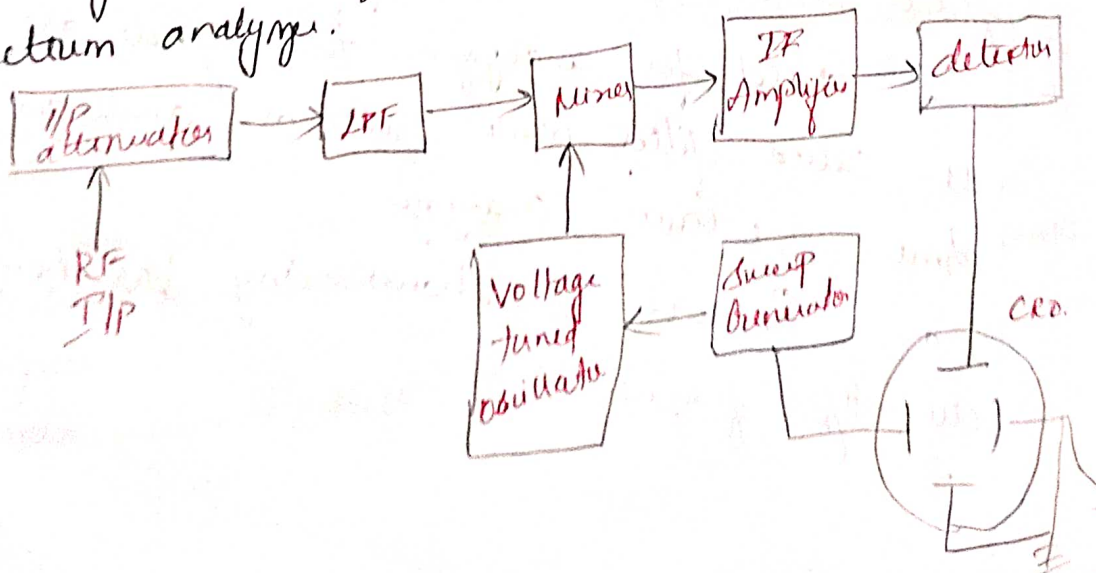 ctrum analyzer.
i/p
attenuator
LPF
Mixer
IF
Amplifier
detector
RF
I/P
Voltage
tuned
oscillator
Sweep
Generator
CRO.